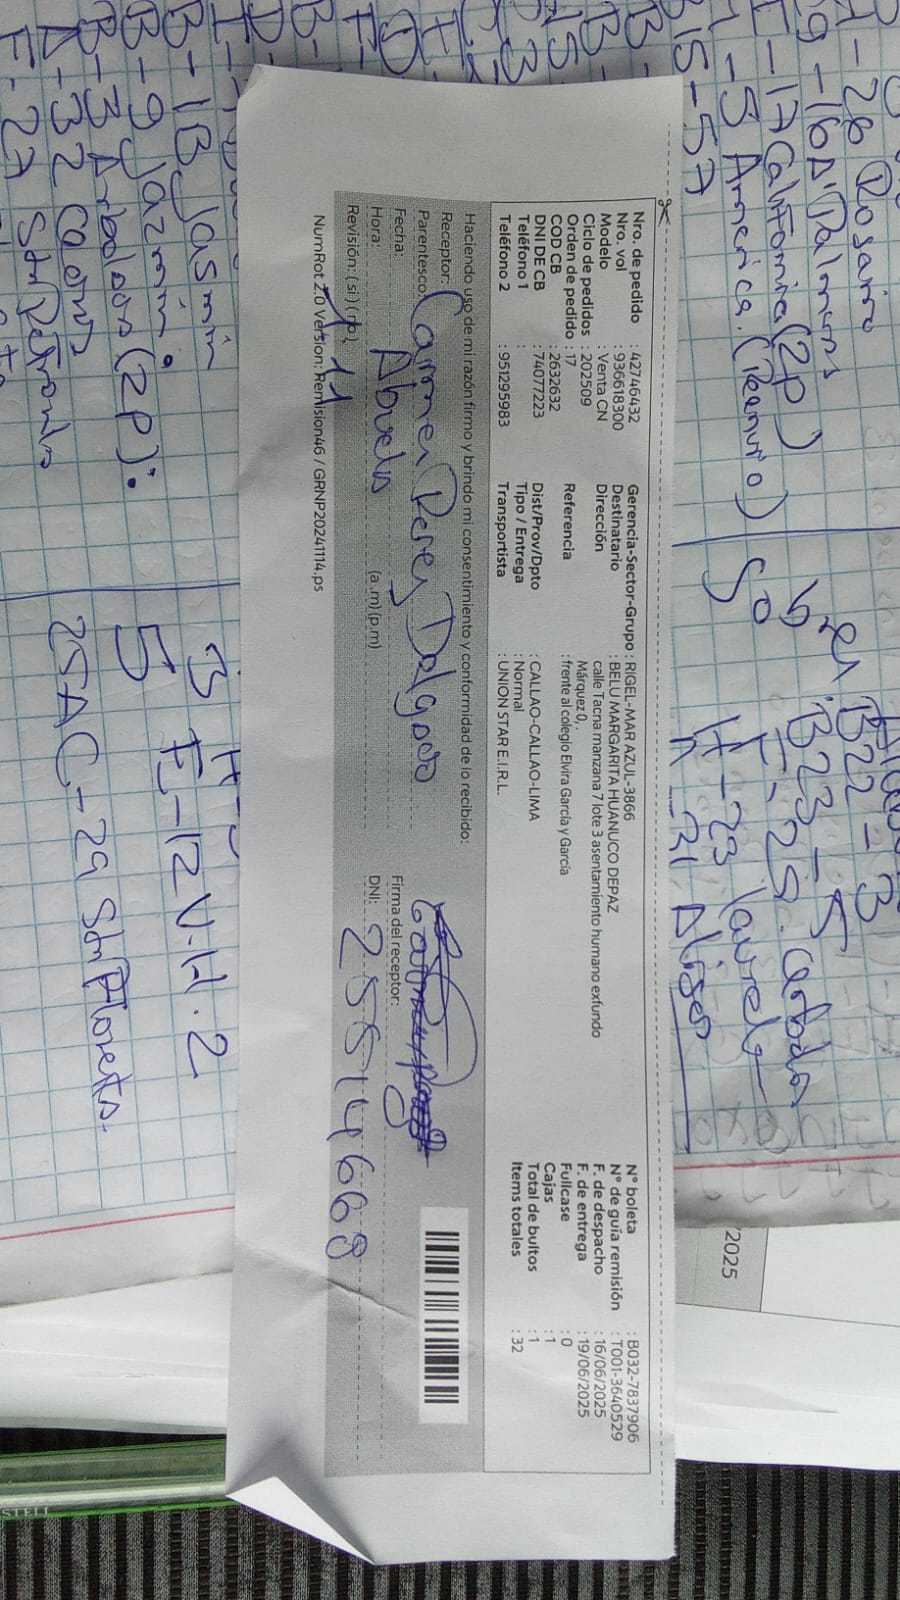 Nro. de pedido : 42746432
Nro. vol : 936618300
Modelo : Venta CN
Ciclo de pedidos : 202509
Orden de pedido : 17
COD CB : 2632632
DNI DE CB : 74077223
Teléfono 1 :
Teléfono 2 : 951295983
Gerencia-Sector-Grupo : RIGEL-MAR AZUL-3866
Destinatario : BELU MARGARITA HUANUCO DEPAZ
Dirección calle Tacna manzana 7 lote 3 asentamiento humano exfundo
Márquez 0, .
Referencia : frente al colegio Elvira García y García
Dist/Prov/Dpto : CALLAO-CALLAO-LIMA
Tipo / Entrega : Normal
Transportista : UNION STAR E.I.R.L.
N° boleta : B032-7837906
N° de guía remisión : T001-3640529
F. de despacho : 16/06/2025
F. de entrega : 19/06/2025
Fullcase : 0
Cajas : 1
Total de bultos : 1
Items totales : 32
Haciendo uso de mi razón firmo y brindo mi consentimiento y conformidad de lo recibido:
Receptor: Carmen Peres Delgado
Parentesco: Abuela
Fecha:
Hora: (a.m) (p.m)
Revisión: (si) (no) 11
Firma del receptor:
DNI: 25514668
NumRot 2.0 Version: Remision46 / GRNP20241114.ps
26 Rosario
-16 D' Palmeras
E-17 California (2P)
-5 America. (Reanuro)
15-57
B-1B Jasmin
B-9 Jazmin:
B-3 Arboleda (2P):
A-32 Cedros
F-27 San Petronila
B22-3
B23-5
E-25. Cerbados
H-23 laurela
h-31 Aliser
E-12 V.H.2
5
25AC-29 San Florests.
/2025